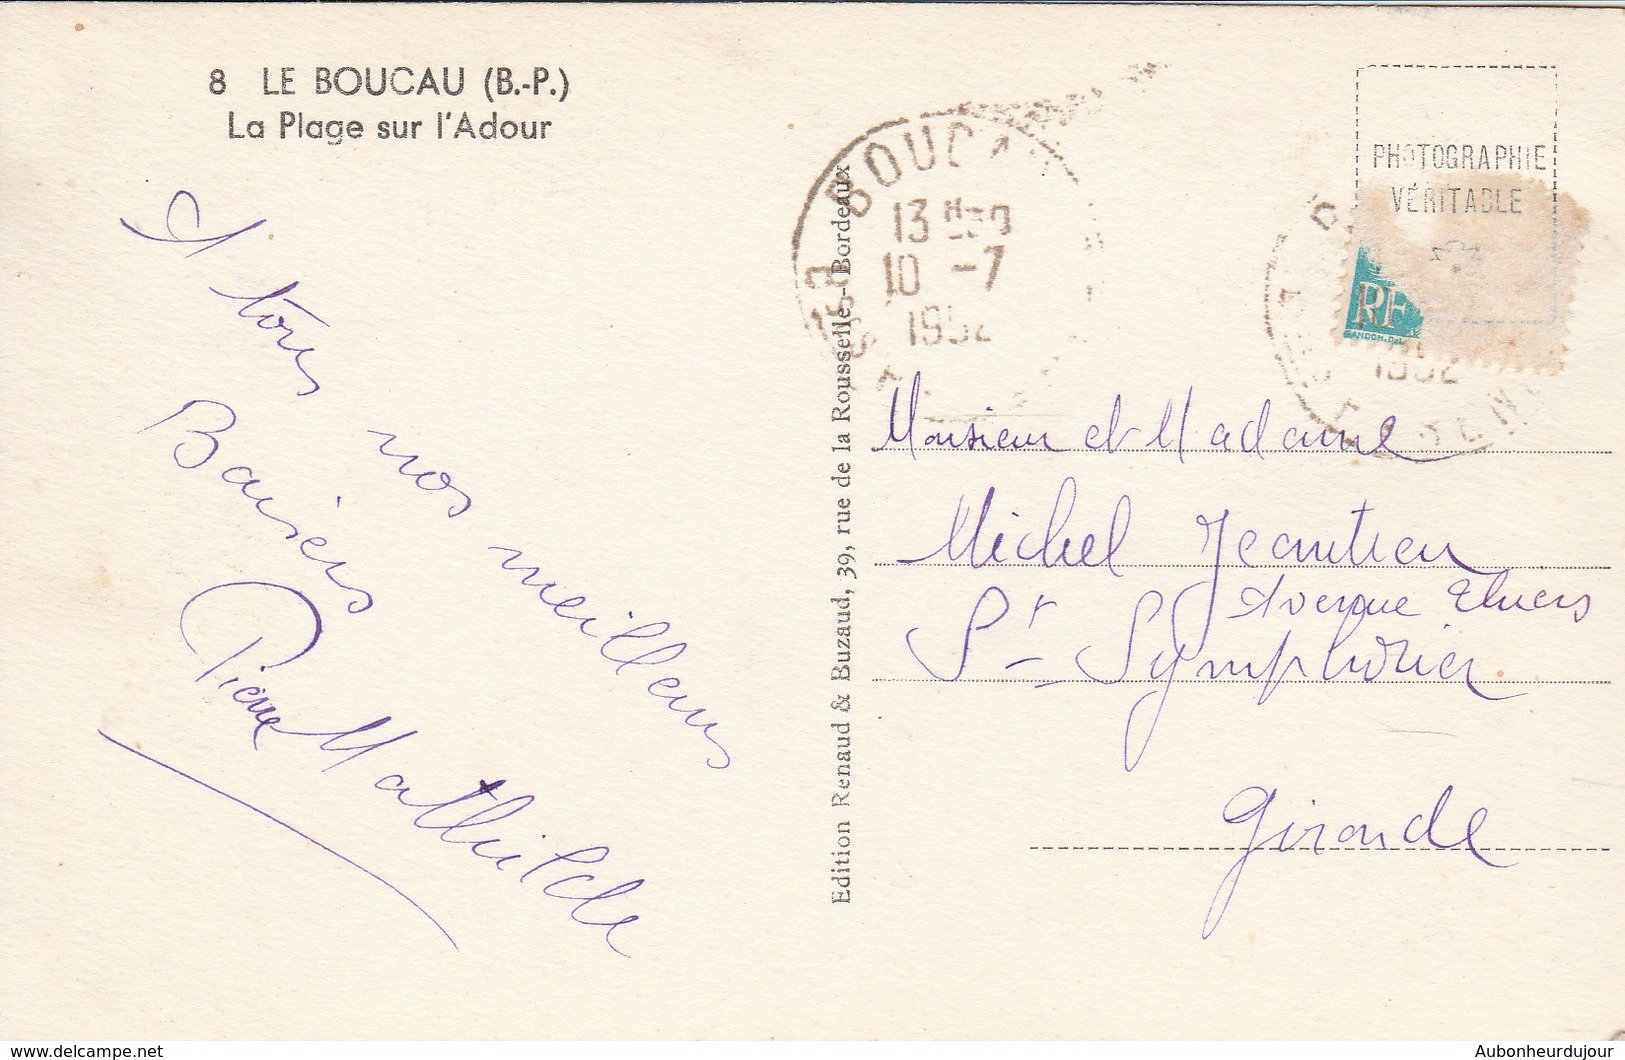 8 LE BOUCAU (B.-P.)
La Plage sur l'Adour
A tous nos meilleurs
Baisers
Pierre Mathilde
Edition Renaud & Buzaud, 39, rue de la Rousselle - Bordeaux
BOUCA
13 H30
10 -7
1952
PHOTOGRAPHIE
VÉRITABLE
RF
GANDON.DEL
1952
Monsieur et Madame
Michel
Avenue Thiers
St Symphorien
Gironde
delcampe.net
Aubonheurdujour